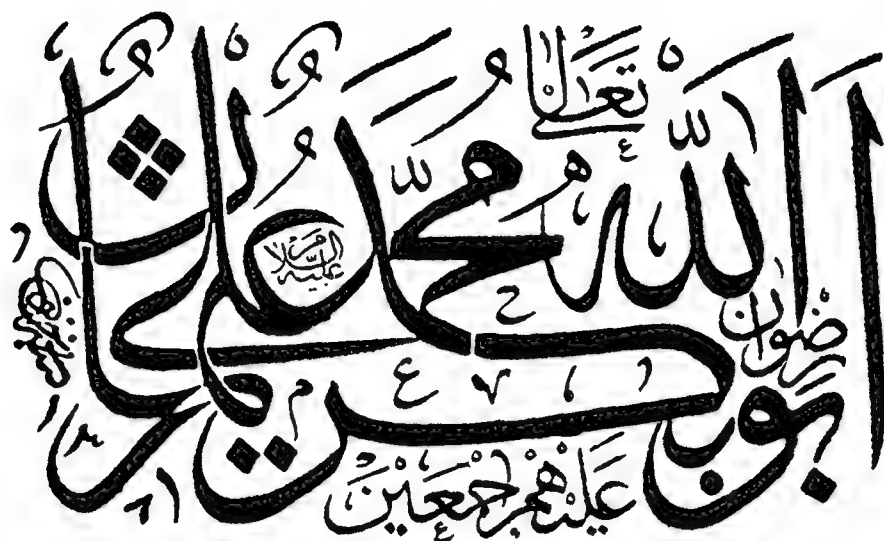 الله تعالى
محمد عليه السلام
ابوبكر عمر عثمان علي
رضوان
عَلَيْهِمْ اَجْمَعِيْنَ